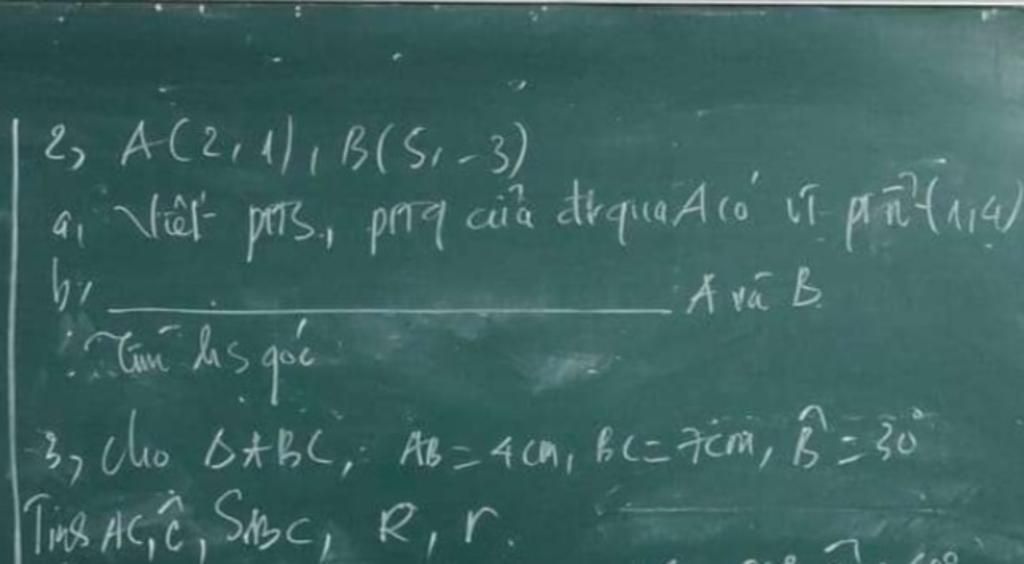 2, A(2,1), B(5,-3)
a, Viết ptTS, ptTQ của đt qua A có vt pt n⃗(1,4)
b, ________ A và B
Tìm hs góc
3, Cho ΔABC, AB = 4cm, BC = 7cm, B̂ = 30°
Tính AC, Ĉ, SABC, R, r.